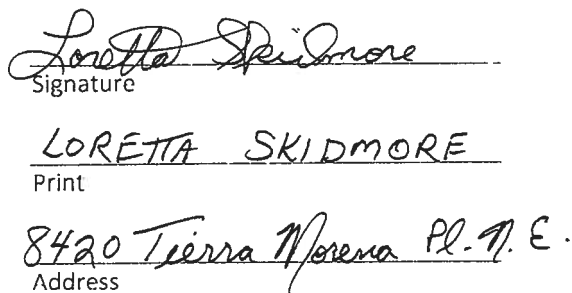 Loretta Skidmore
Signature
LORETTA SKIDMORE
Print
8420 Tierra Morena Pl. N.E.
Address